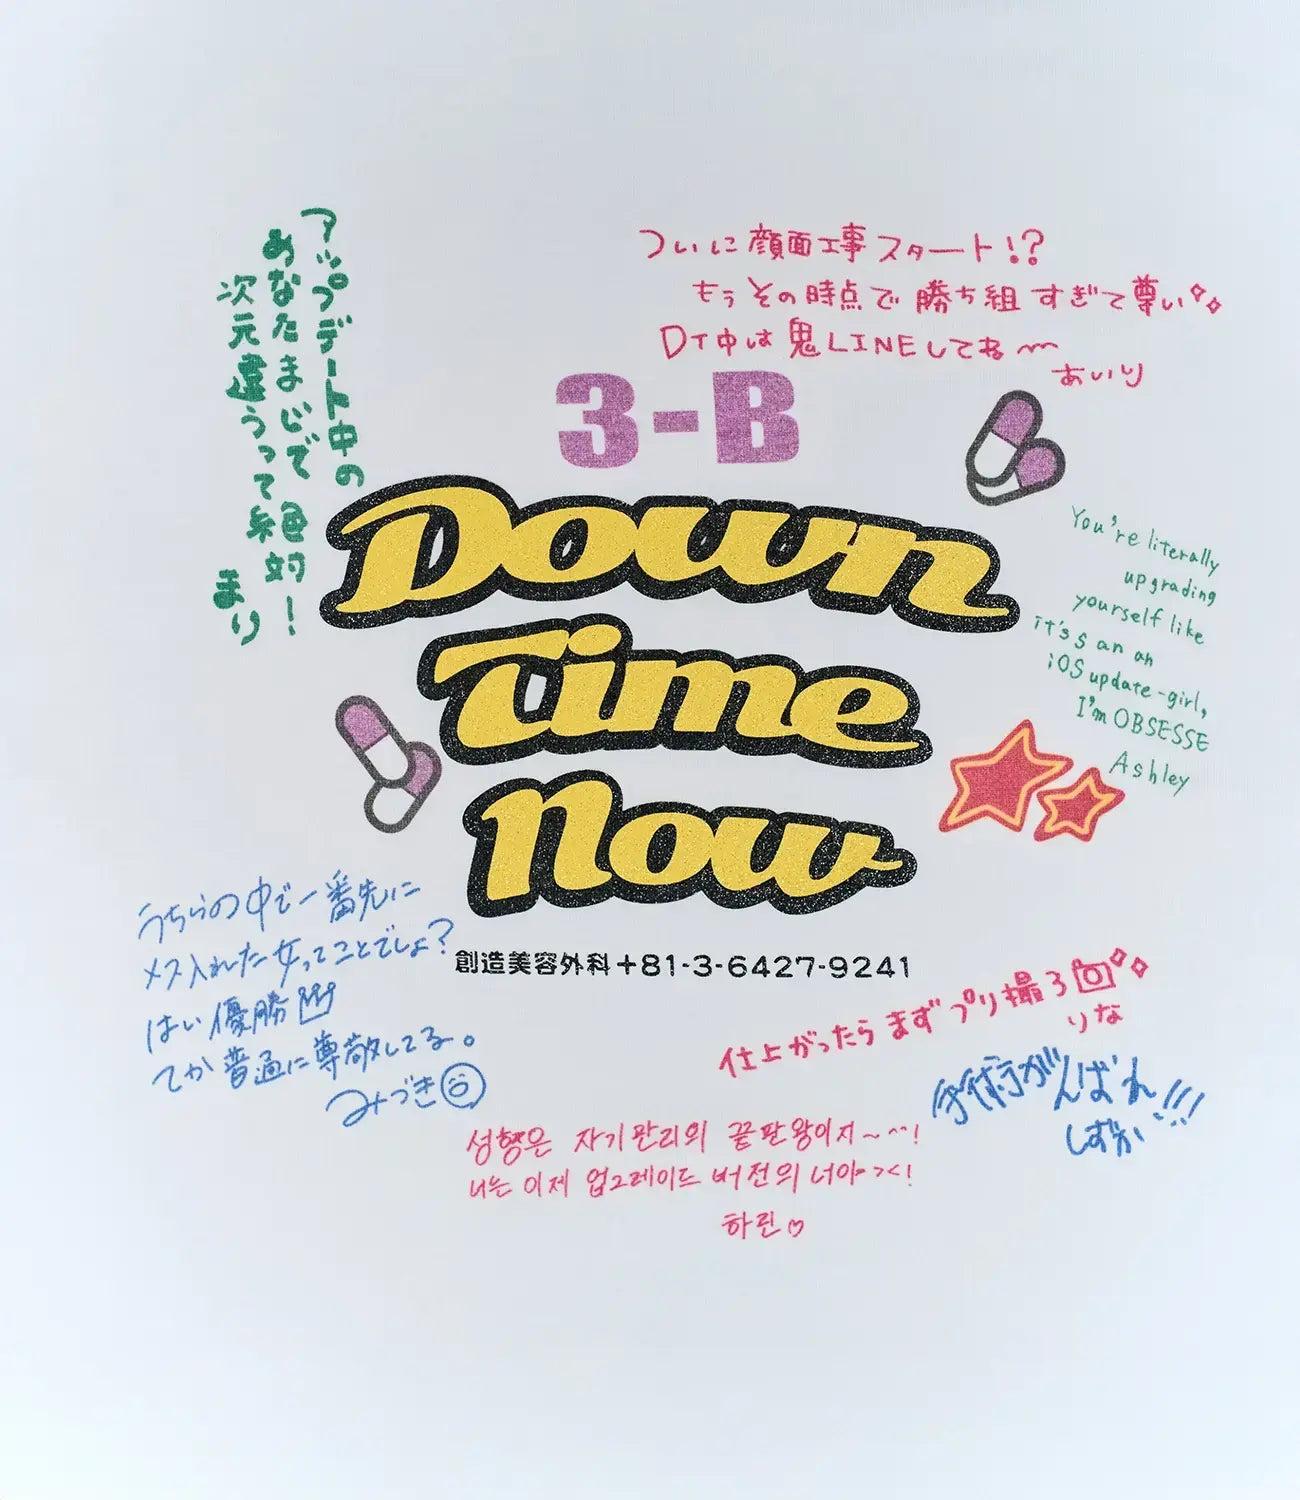 ついに顔面工事スタート!?
もうその時点で勝ち組すぎて尊い
DT中は鬼LINEしてね〰
あいり
アップデート中の
あなたまじで絶対!
次元違うって絶
まり
3-B
Down
Time
Now
You're literally
upgrading
yourself like
it's an an
iOS update-girl,
I'm OBSESSE
Ashley
うちらの中で一番先に
メス入れた女ってことでしょ?
はい優勝
てか普通に尊敬してる。
みづき
創造美容外科+81-3-6427-9241
仕上がったらまずプリ撮ろ
りな
手術がんばれ!!!
しずか
성형은 자기관리의 끝판왕이지~^^!
너는 이제 업그레이드 버전의 너야><!
하린♡